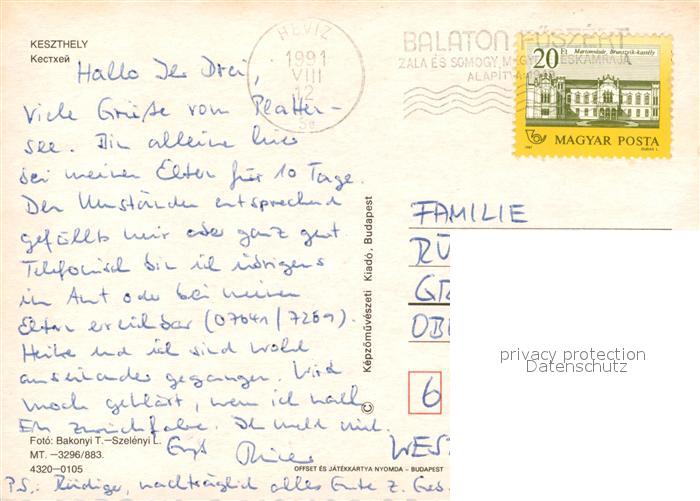 KESZTHELY
Кестхей
HÉVÍZ
1991
VIII
12
BALATON FŰSZÉRT
ZALA ÉS SOMOGY MEGYE ÉLÉSKAMRÁJA
20 Ft
Martonvásár, Brunszvik-kastély
MAGYAR POSTA
1987
Hallo Ihr Drei,
viele Grüße vom Platten-
see. Bin alleine hier
bei meinen Eltern für 10 Tage.
Den Umständen entsprechend
gefällts mir aber ganz gut.
Telefonisch bin ich übrigens
im Amt oder bei meinen
Eltern erreichbar (07041/7269).
Heike und ich sind wohl
auseinander gegangen. Wird
noch geklärt, wenn ich nach
zurückfahre. Ich meld mich.
P.S.: Rüdiger, nachträglich alles Gute z. Geb.
Képzőművészeti Kiadó, Budapest
©
Fotó: Bakonyi T.–Szelényi L.
MT. –3296/883.
4320–0105
OFFSET ÉS JÁTÉKKÁRTYA NYOMDA – BUDAPEST
FAMILIE
RÜ
GR
OBE
6
WEST
privacy protection
Datenschutz